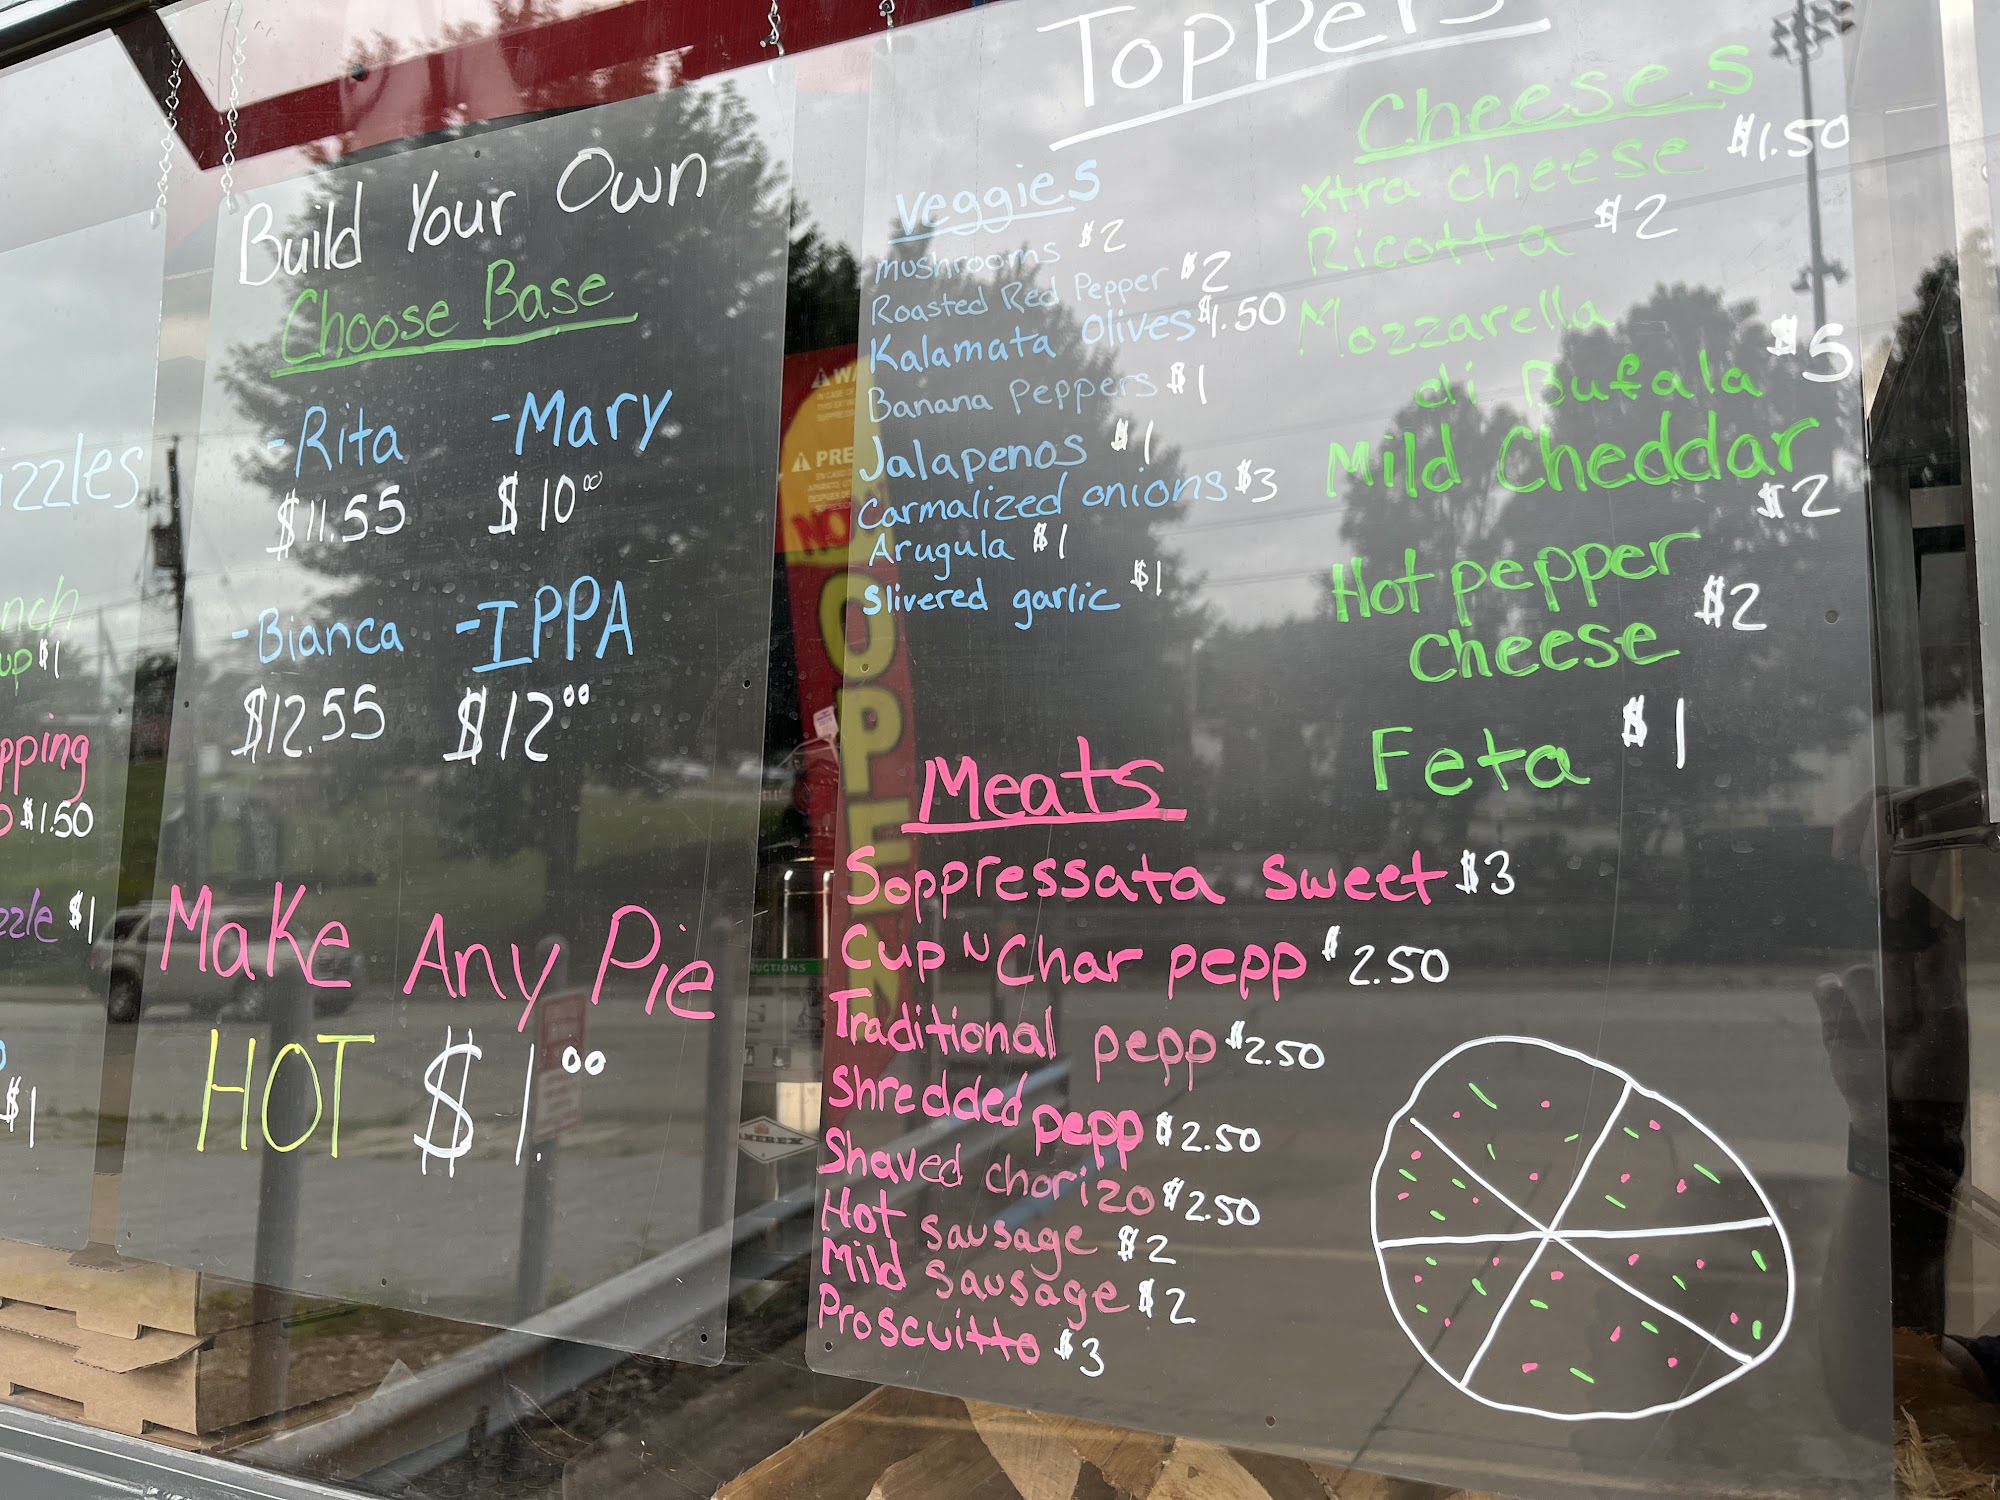 izzles
nch
up $1
pping
$1.50
zzle $1
$1
Build Your Own
Choose Base
-Rita -Mary
$11.55 $10⁰⁰
-Bianca -IPPA
$12.55 $12⁰⁰
Make Any Pie
HOT $1.⁰⁰
Toppers
Veggies
mushrooms $2
Roasted Red Pepper $2
Kalamata Olives $1.50
Banana Peppers $1
Jalapenos $1
Carmalized onions $3
Arugula $1
Slivered garlic $1
Cheeses
Xtra cheese $1.50
Ricotta $2
Mozzarella
di Bufala $5
Mild Cheddar
$2
Hot pepper
Cheese $2
Feta $1
Meats
Soppressata Sweet $3
Cup N Char pepp $2.50
Traditional pepp $2.50
Shredded pepp $2.50
Shaved chorizo $2.50
Hot sausage $2
Mild sausage $2
Proscuitto $3
NOW
OPEN